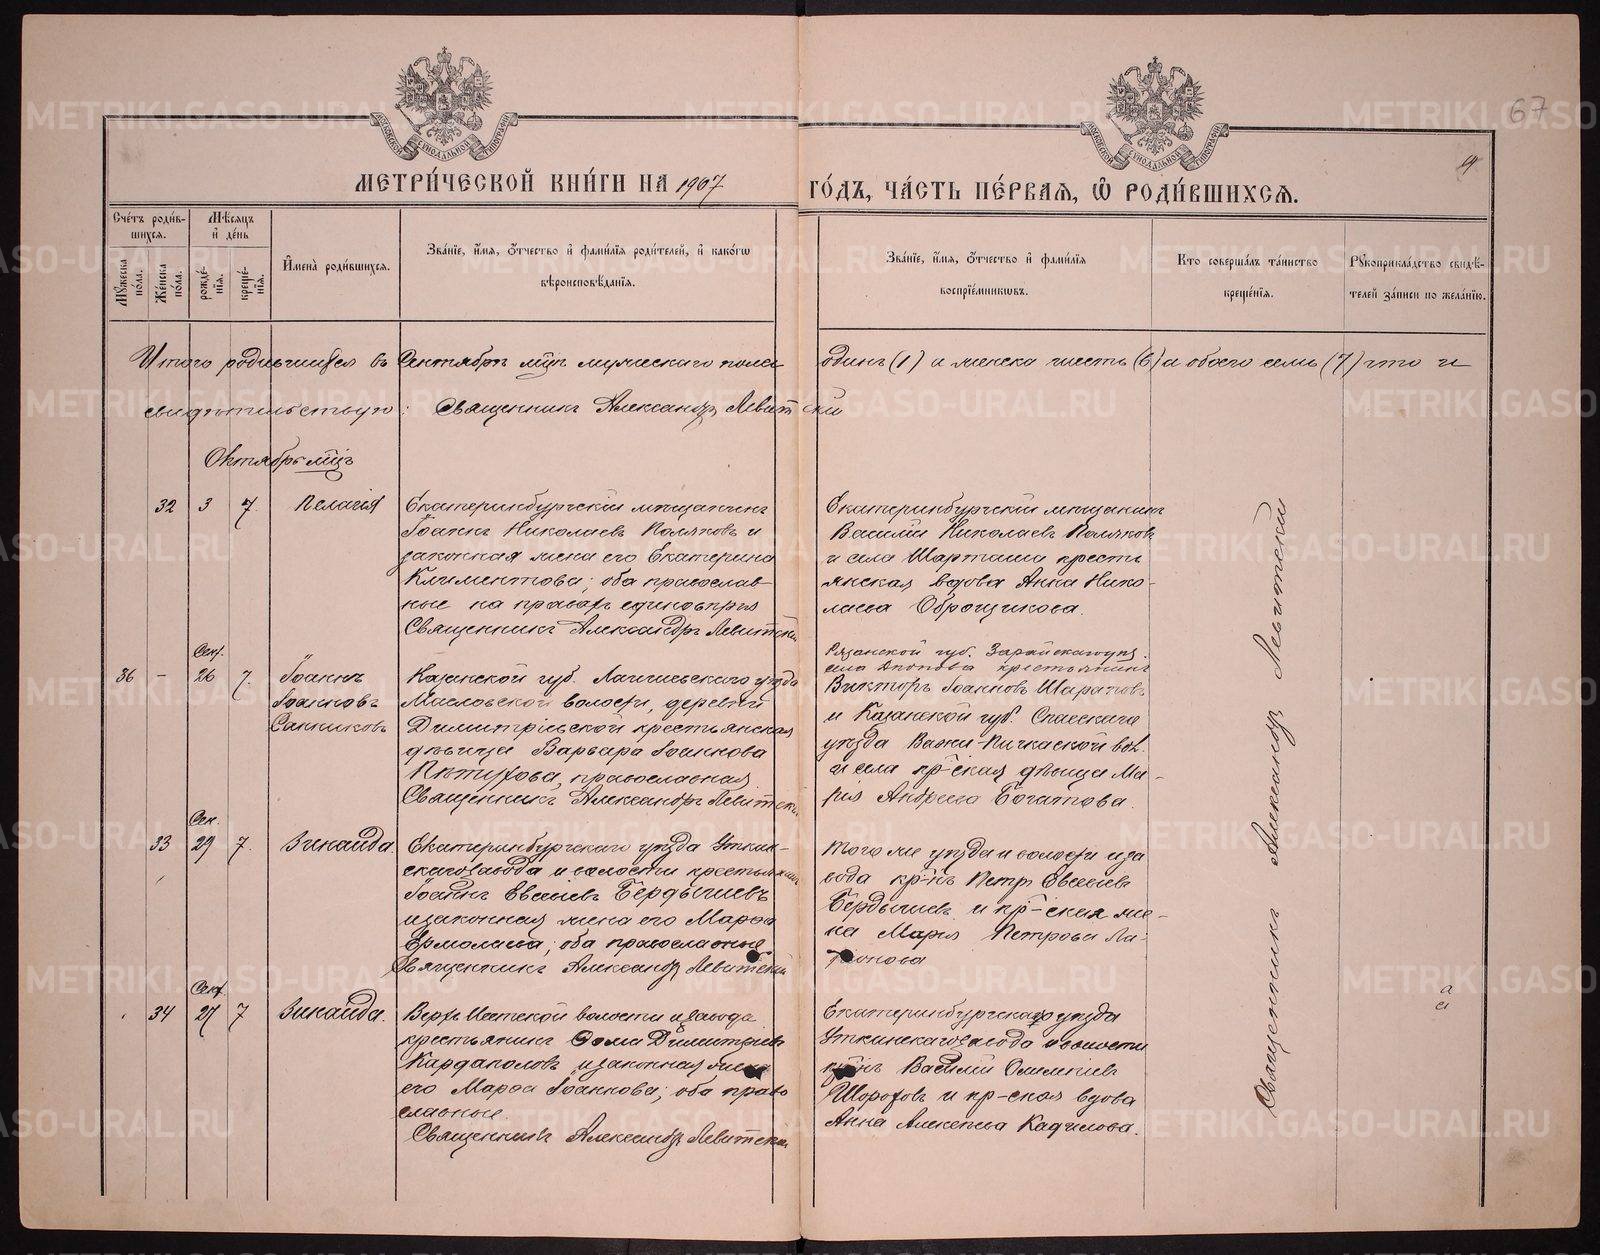 67
МЕТРИ́ЧЕСКОЙ КНИ́ГИ НА 1907 ГО́ДЪ, ЧА́СТЬ ПЕ́РВАЯ, Ѽ РОДИ́ВШИХСЯ.
Сче́тъ роди́в-
шихся.
Му́жеска по́ла.
Же́нска по́ла.
Мѣ́сяцъ
и де́нь
рожде́-
нїя.
креще́-
нїя.
И҆мена̀ роди́вшихся.
Зва́нїе, и҆́мя, ѻ҆́тчество и҆ фами́лїя роди́телей, и҆ како́гѡ
вѣроисповѣ́данїя.
Зва́нїе, и҆́мя, ѻ҆́тчество и҆ фами́лїя
воспрїе́мниковъ.
Кто соверша́лъ та́инство
креще́нїя.
Рꙋкоприкла́дство свидѣ́-
телей за́писи по жела́нїю.
Итого родившихся въ Сентябрѣ мцѣ мужескаго пола одинъ (1) а женска шесть (6) а обоего семь (7) что и
свидѣтельствую: Священникъ Александръ Левитскій
Октябрь мцъ
32 3 7. Пелагія
Екатеринбургскій мѣщанинъ
Іоаннъ Николаевъ Поляковъ и
законная жена его Екатерина
Климентова; оба православ-
ные на правахъ единовѣрія
Священникъ Александръ Левитскій
Екатеринбургскій мѣщанинъ
Василій Николаевъ Поляковъ
и села Шарташа кресть
янская вдова Анна Нико-
лаева Оброщикова.
Сент.
36 - 26 7. Іоаннъ
Іоанновъ
Санниковъ
Казанской губ. Лаишевскаго уѣзда
Масловской волости, деревни
Димитріевской крестьянская
дѣвица Варвара Іоаннова
Пѣтухова, православная
Священникъ Александръ Левитскій
Рязанской губ. Зарайскаго уѣз.
села крестьянинъ
Викторъ Іоанновъ Шараповъ
и Казанской губ. Спасскаго
уѣзда вол.
и села кр-ская дѣвица Ма-
рія Андреева Богатова.
Сен.
33 29 7. Зинаида
Екатеринбургскаго уѣзда Уткин-
скаго завода и волости крестьянинъ
Іоаннъ Евсеевъ Бердышевъ
и законная жена его Марѳа
Ермолаева; оба православные
Священникъ Александръ Левитскій
того же уѣзда и волости и за
вода кр-нъ Петръ Евсеевъ
Бердышевъ и кр-ская же-
на Марія Петрова Ла-
Сент.
34 27 7 Зинаида.
Верхъ Исетской волости и завода
крестьянинъ Ѳома Димитріевъ
Кардаполовъ и законная жена
его Марѳа Іоаннова; оба право
славные.
Священникъ Александръ Левитскій
Екатеринбургскаго уѣзда
Уткинскаго завода и волости
кр-нъ Василій
и кр-ская вдова
Анна Алексѣева Кадилова.
Священникъ Александръ Левитскій
METRIKI.GASO-URAL.RU